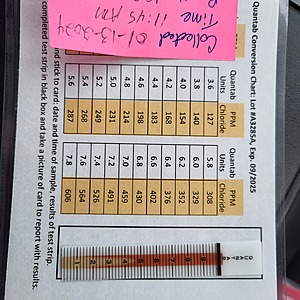 Collected 01-13-2024
Time 11:45 AM
Quantab Conversion Chart: Lot #A2285A, Exp. 09/2025
Quantab Units PPM Chloride Quantab Units PPM Chloride
3.6 127 5.8 308
3.8 140 6.0 329
4.0 154 6.2 352
4.2 168 6.4 376
4.4 183 6.6 402
4.6 198 6.8 430
4.8 214 7.0 459
5.0 231 7.2 491
5.2 249 7.4 526
5.4 268 7.6 564
5.6 287 7.8 606
QUANTAB
9
8
7
6
5
4
3
2
1
and stick to card: date and time of sample, results of test strip.
completed test strip in black box and take a picture of card to report with results.